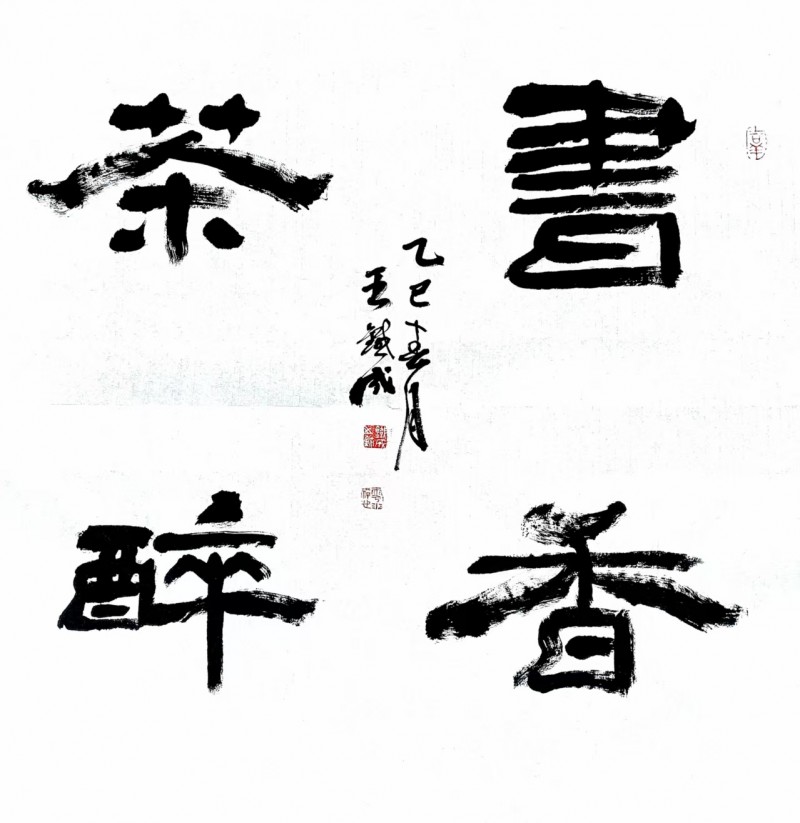 書香
茶醉
乙巳春月
王鐵成